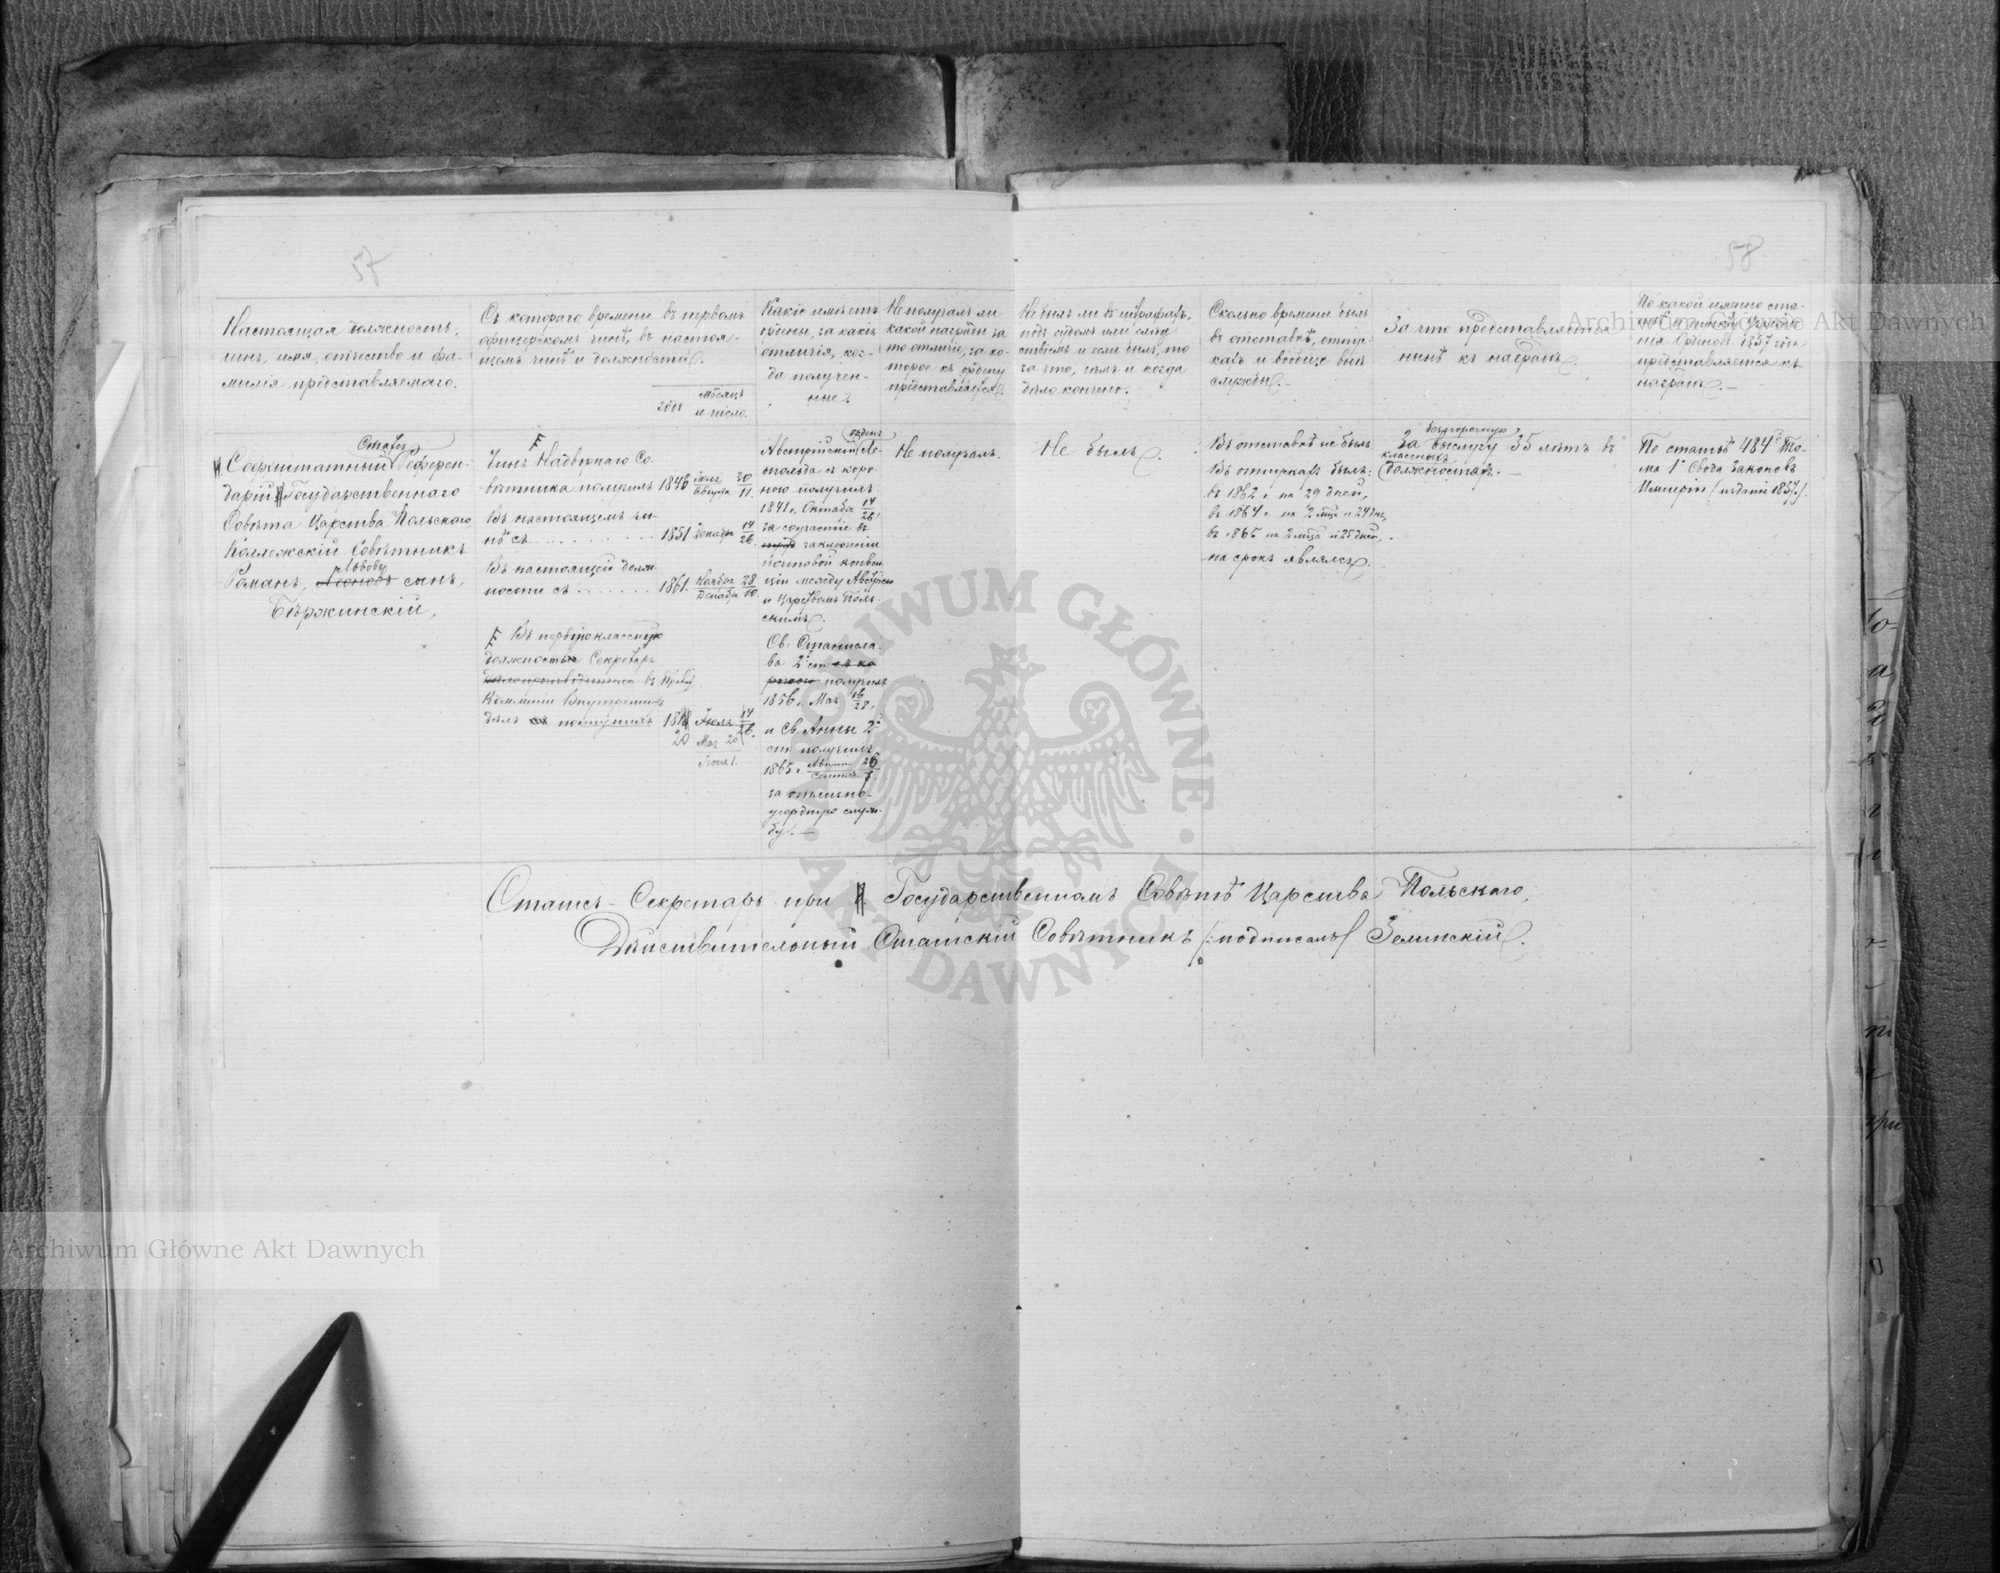 57
58
Настоящая должность,
чинъ, имя, отчество и фа-
милія представляемаго.
Съ котораго времени въ первомъ
офицерскомъ чинѣ, въ настоя-
щемъ чинѣ и должности.
годъ
мѣсяцъ
и число.
Какіе имѣетъ
ордены, за какія
отличія, ког-
да получен-
ные.
Не получалъ ли
какой награды за
то отличіе, за ко-
торое къ ордену
представляется.
Не былъ ли въ штрафахъ,
подъ судомъ или слѣд
ствіемъ и если былъ, то
за что, чѣмъ и когда
дѣло кончено.
Сколько времени былъ
въ отставкѣ, отпус-
кахъ и вообще внѣ
службы.
За что представляется
нынѣ къ наградѣ.
По какой именно ста-
тьѣ
нія Орденовъ 1857 года
представляется къ
наградѣ.
Статсъ
Сверхштатный Референ-
дарій Государственнаго
Совѣта Царства Польскаго,
Коллежскій Совѣтникъ
Львовъ
Романъ, сынъ,
Бѣржинскій,
Чинъ Надворнаго Со-
вѣтника получилъ 1846 Іюля 30
Августа 11.
Въ настоящемъ чи-
нѣ съ 1851 Декабря 14
26.
Въ настоящей долж-
ности съ 1861. Ноября 28
Декабря 10.
Въ первую классную
должность Секретаря
въ Правит.
Коммисіи Внутреннихъ
дѣлъ поступилъ 18 Іюля 14
26.
20 Мая 20
Іюня 1.
орденъ
Австрійскій Ле-
опольда съ коро-
ною получилъ
1841 г. Октября 14
26,
за соучастіе въ
заключеніи
почтовой конвен
ціи между Австріею
и Царствомъ Поль-
скимъ.
Св. Станисла-
ва 2й ст. съ ко
роною получилъ
1856 г. Мая 16
28,
и Св. Анны 2й
ст. получилъ
1865 г. Августа 26
Сентяб. 7.
за отлично-
усердную служ-
бу.
Не получалъ.
Не былъ.
Въ отставкѣ не былъ.
Въ отпускахъ былъ:
въ 1862 г. на 29 дней,
въ 1864 г. на 2 мѣс. и 24 дня,
въ 1865 на 2 мѣсца и 25 дней,
на срокъ являлся.
безпорочную
За выслугу 35 лѣтъ въ
классныхъ
должностяхъ.
По статьѣ 484й То-
ма 1го Свода Законовъ
Имперіи (изданіе 1857.).
Статсъ-Секретарь при Государственномъ Совѣтѣ Царства Польскаго,
Дѣйствительный Статскій Совѣтникъ (:подписалъ) Зелинскій.
ARCHIWUM GŁÓWNE AKT DAWNYCH
Archiwum Główne Akt Dawnych
Archiwum Główne Akt Dawnych